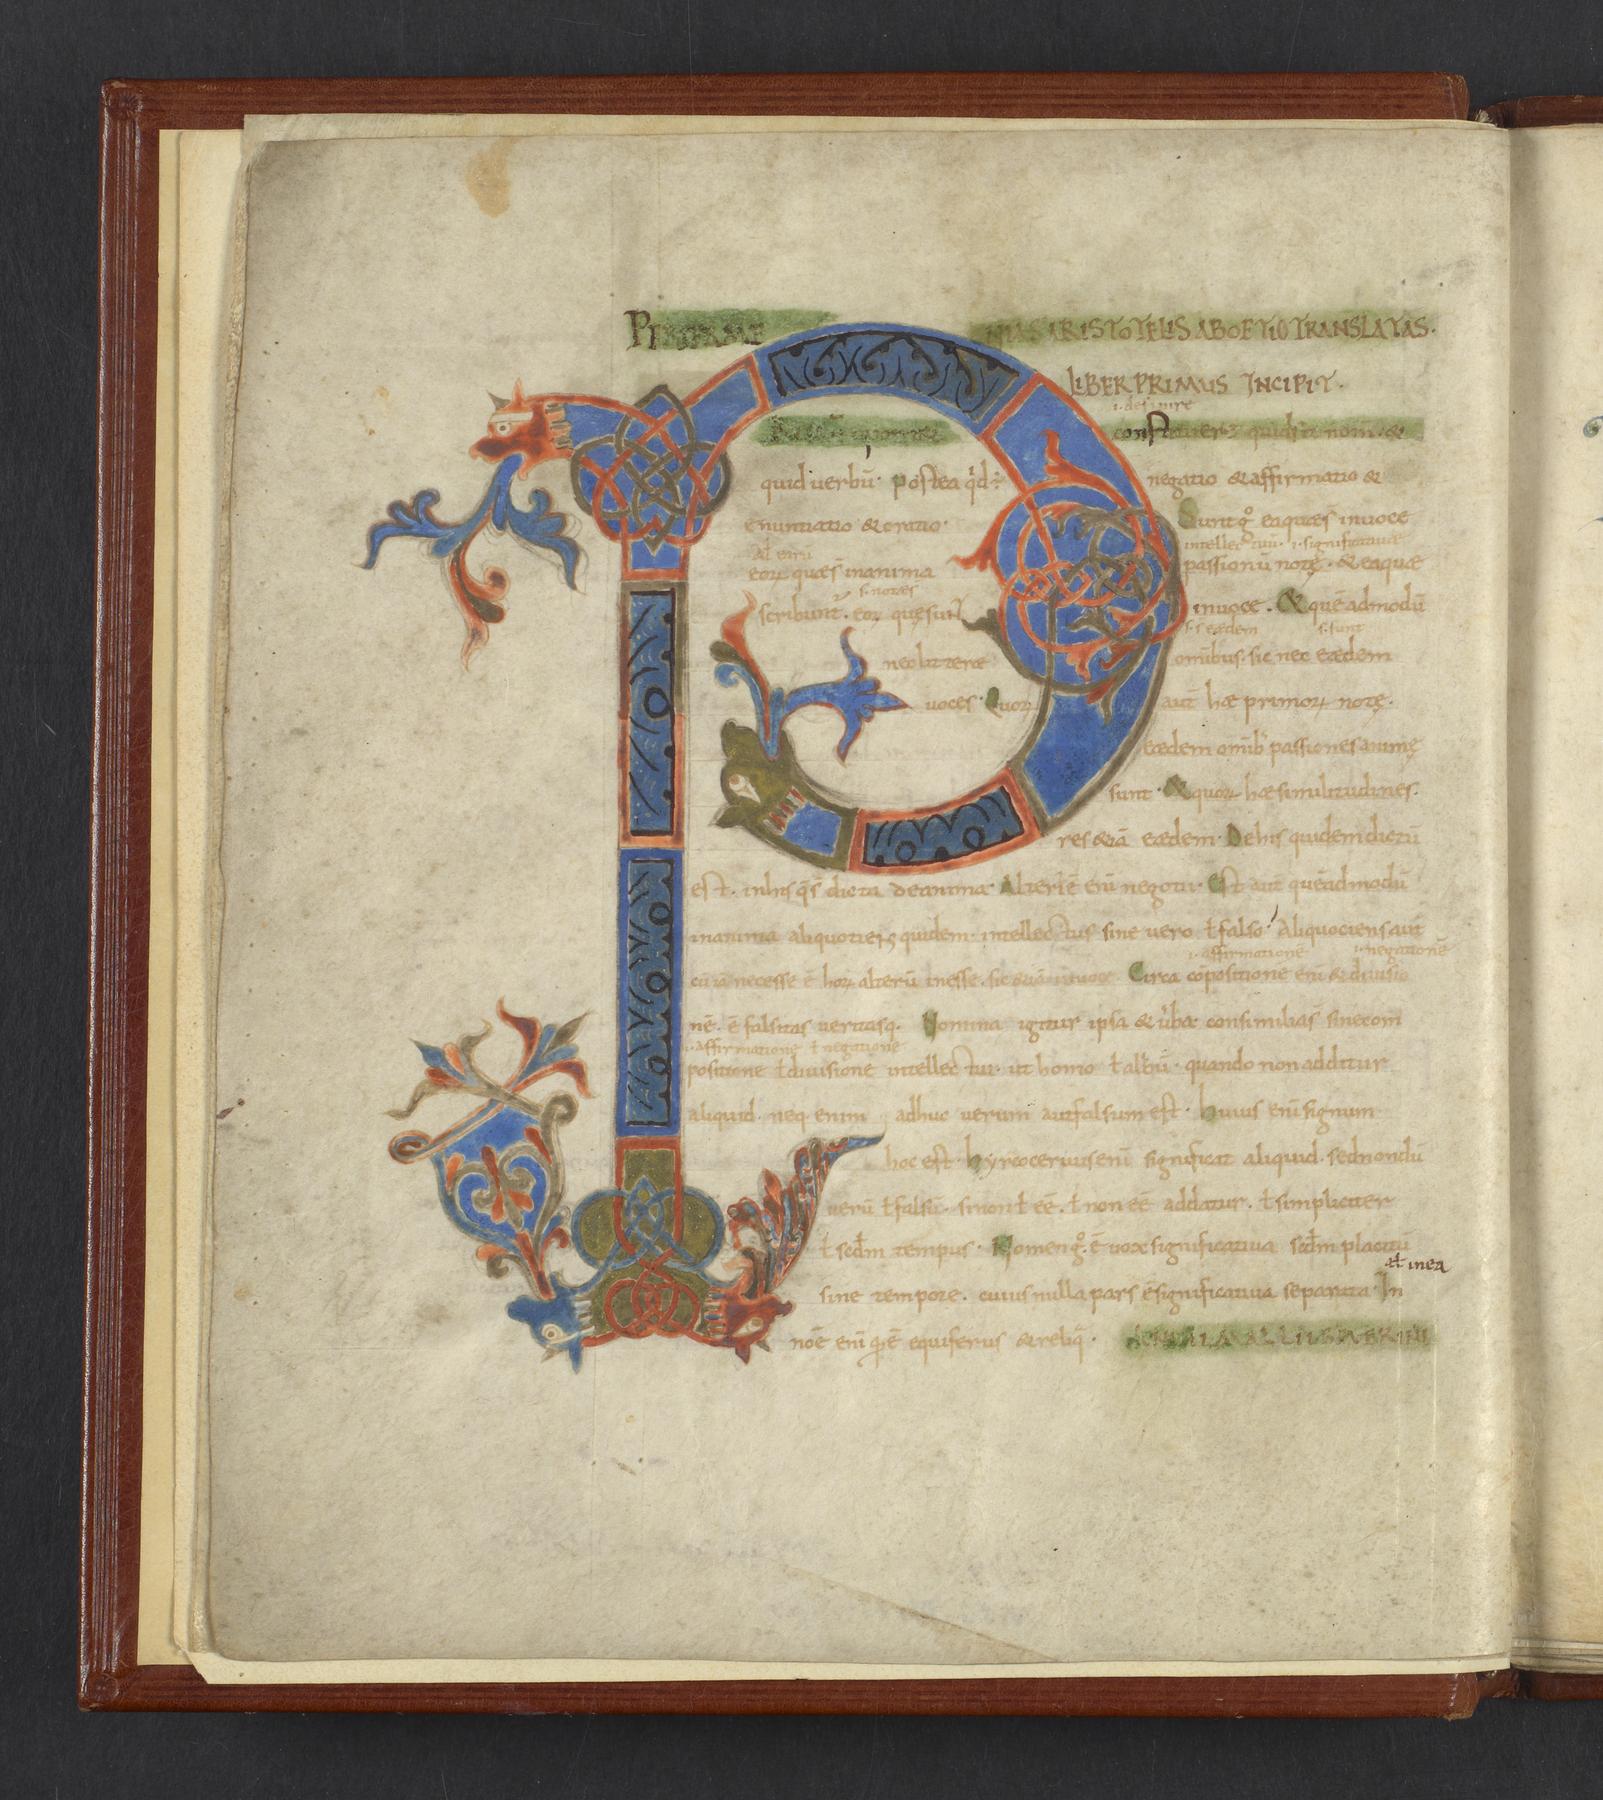 PERIERME NIAS ARISTOTELIS ABOETIO TRANSLATAS.
LIBER PRIMUS INCIPIT.
.i. definire
constituere quid sit nom̄. &
quid uerbū. postea q̇d.
negatio & affirmatio &
enuntiatio & oratio.
Sunt gͦ ea quae s in uoce
intellectuū .i. significatiuae
eoꝝ quae s in anima passionū notę. & ea quae
s. notaes
scribunt̃. eoꝝ quę sunt in uoce. & quē admodū
s. eaedem s. sunt
nec litterae omībus. sic nec eaedem
uoces. Quoꝝ aut̄ hae primoꝝ notę.
eaedem omīb; passiones animę
sunt. & quoꝝ hae similitudines.
res &iā eaedem. De his quidem dictū
est. in his q̄ s̄ dicta de anima. Alteri ē enī negotii. Est aut̄ quēadmodū
in anima aliquotiens quidem intellectus sine uero ł falso. Aliquociens aut̄
.i. affirmationē .i. negationē
cū iā necesse ē hoꝝ alterū inesse. sic &iā in uoce. Circa cōpositionē enī & diuisio
nē. ē falsitas ueritasq. Nomina igitur ipsa & ūba consimilia s̄ sine com
.i. affirmatione ł negatione
positione ł diuisione intellectui. ut homo ł albū. quando non additur
aliquid. neq enim adhuc uerum aut falsum est. huius enī signum
hoc est. hyrcoceruus enī significat aliquid. sed nondū
uerū ł falsū. si non ł eē. ł non eē addatur. ł simpliciter
ł scdm̄ tempus. Nomen gͦ. ē uox significatiua scdm̄ placitū
ał in ea
sine tempore. cuius nulla pars ē significatiua separata. In
noē enī qđ ē equiferus & reliq̄.